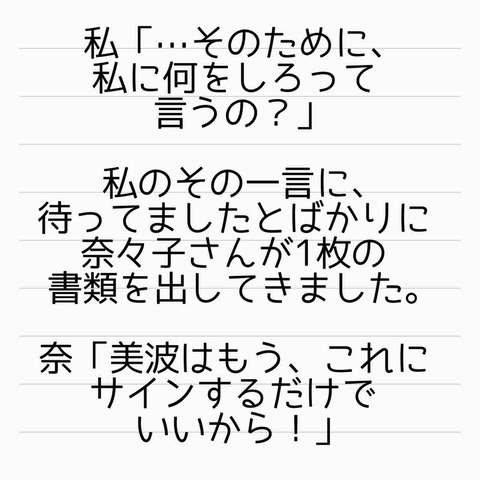 私「…そのために、
私に何をしろって
言うの？」
私のその一言に、
待ってましたとばかりに
奈々子さんが1枚の
書類を出してきました。
奈「美波はもう、これに
サインするだけで
いいから！」